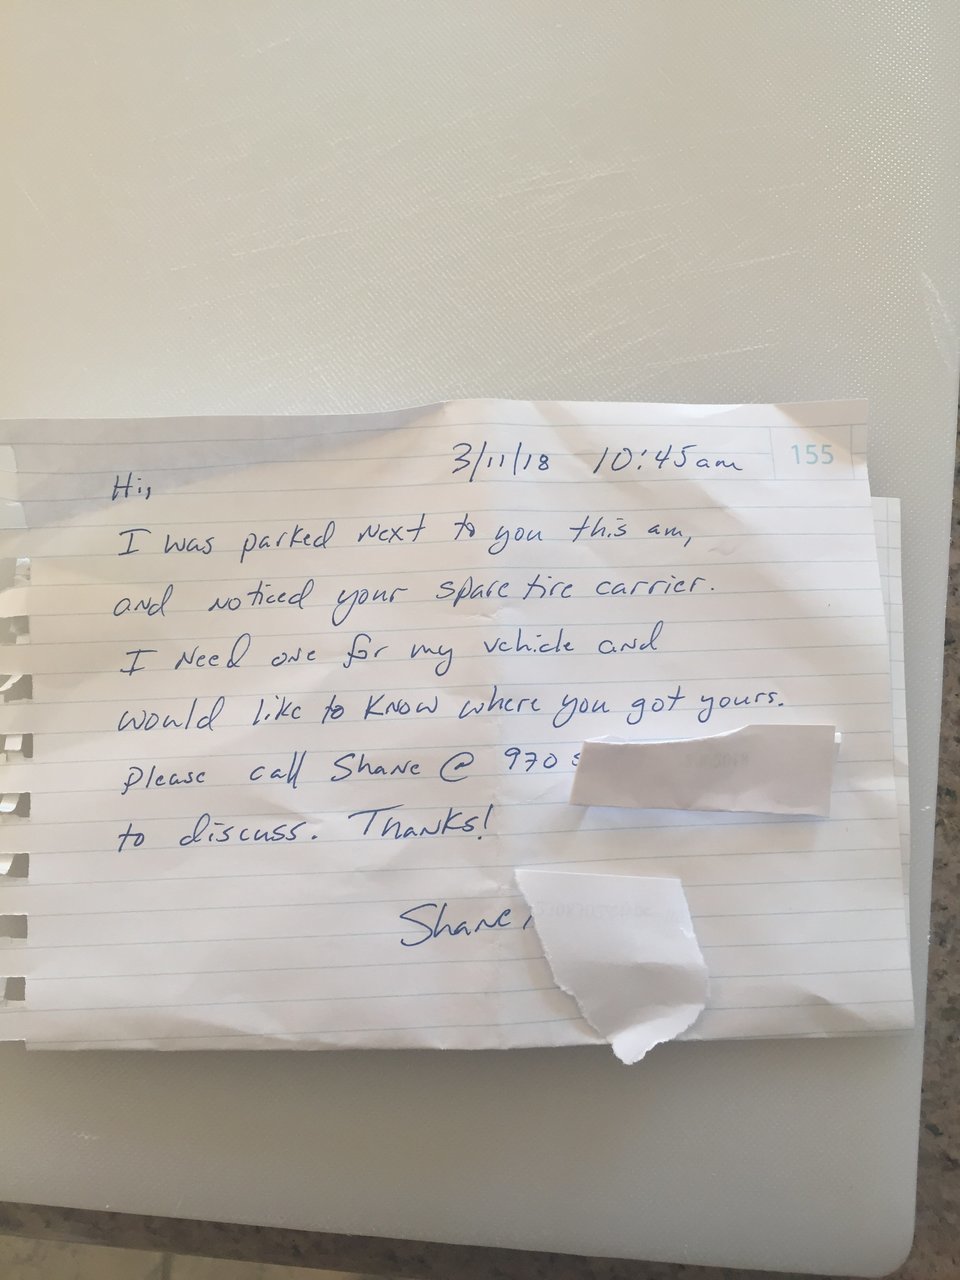 3/11/18 10:45am 155
Hi,
I was parked next to you this am,
and noticed your spare tire carrier.
I need one for my vehicle and
would like to know where you got yours.
Please call Shane @ 970
to discuss. Thanks!
Shane,